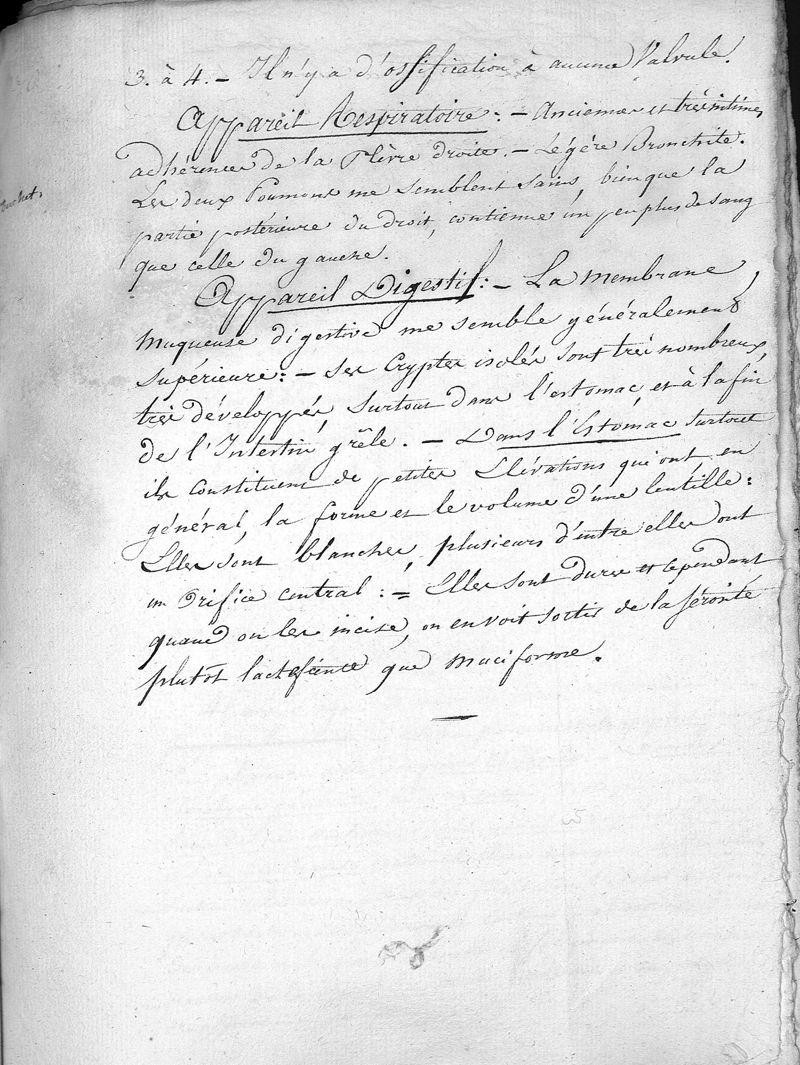 3. à 4. – Il n'y a d'ossification à aucune Valvule.
Appareil Respiratoire: – Anciennes et très intimes
adhérences de la Plèvre droite. – Légère Bronchite.
Les deux Poumons me semblent sains, bien que la
partie postérieure du droit, contienne un peu plus de sang
que celle du gauche.
Appareil Digestif: – La membrane
muqueuse digestive me semble généralement
supérieure: – ses Cryptes isolés sont très nombreux,
très développés, surtout dans l'estomac, et à la fin
de l'Intestin grêle. – Dans l'Estomac surtout
ils constituent de petites Elévations qui ont en
général, la forme et le volume d'une lentille:
Elles sont blanches, plusieurs d'entre elles ont
un Orifice central: = Elles sont dures et cependant
quand on les incise, on en voit sortir de la sérosité
plutôt lactescente que muciforme.